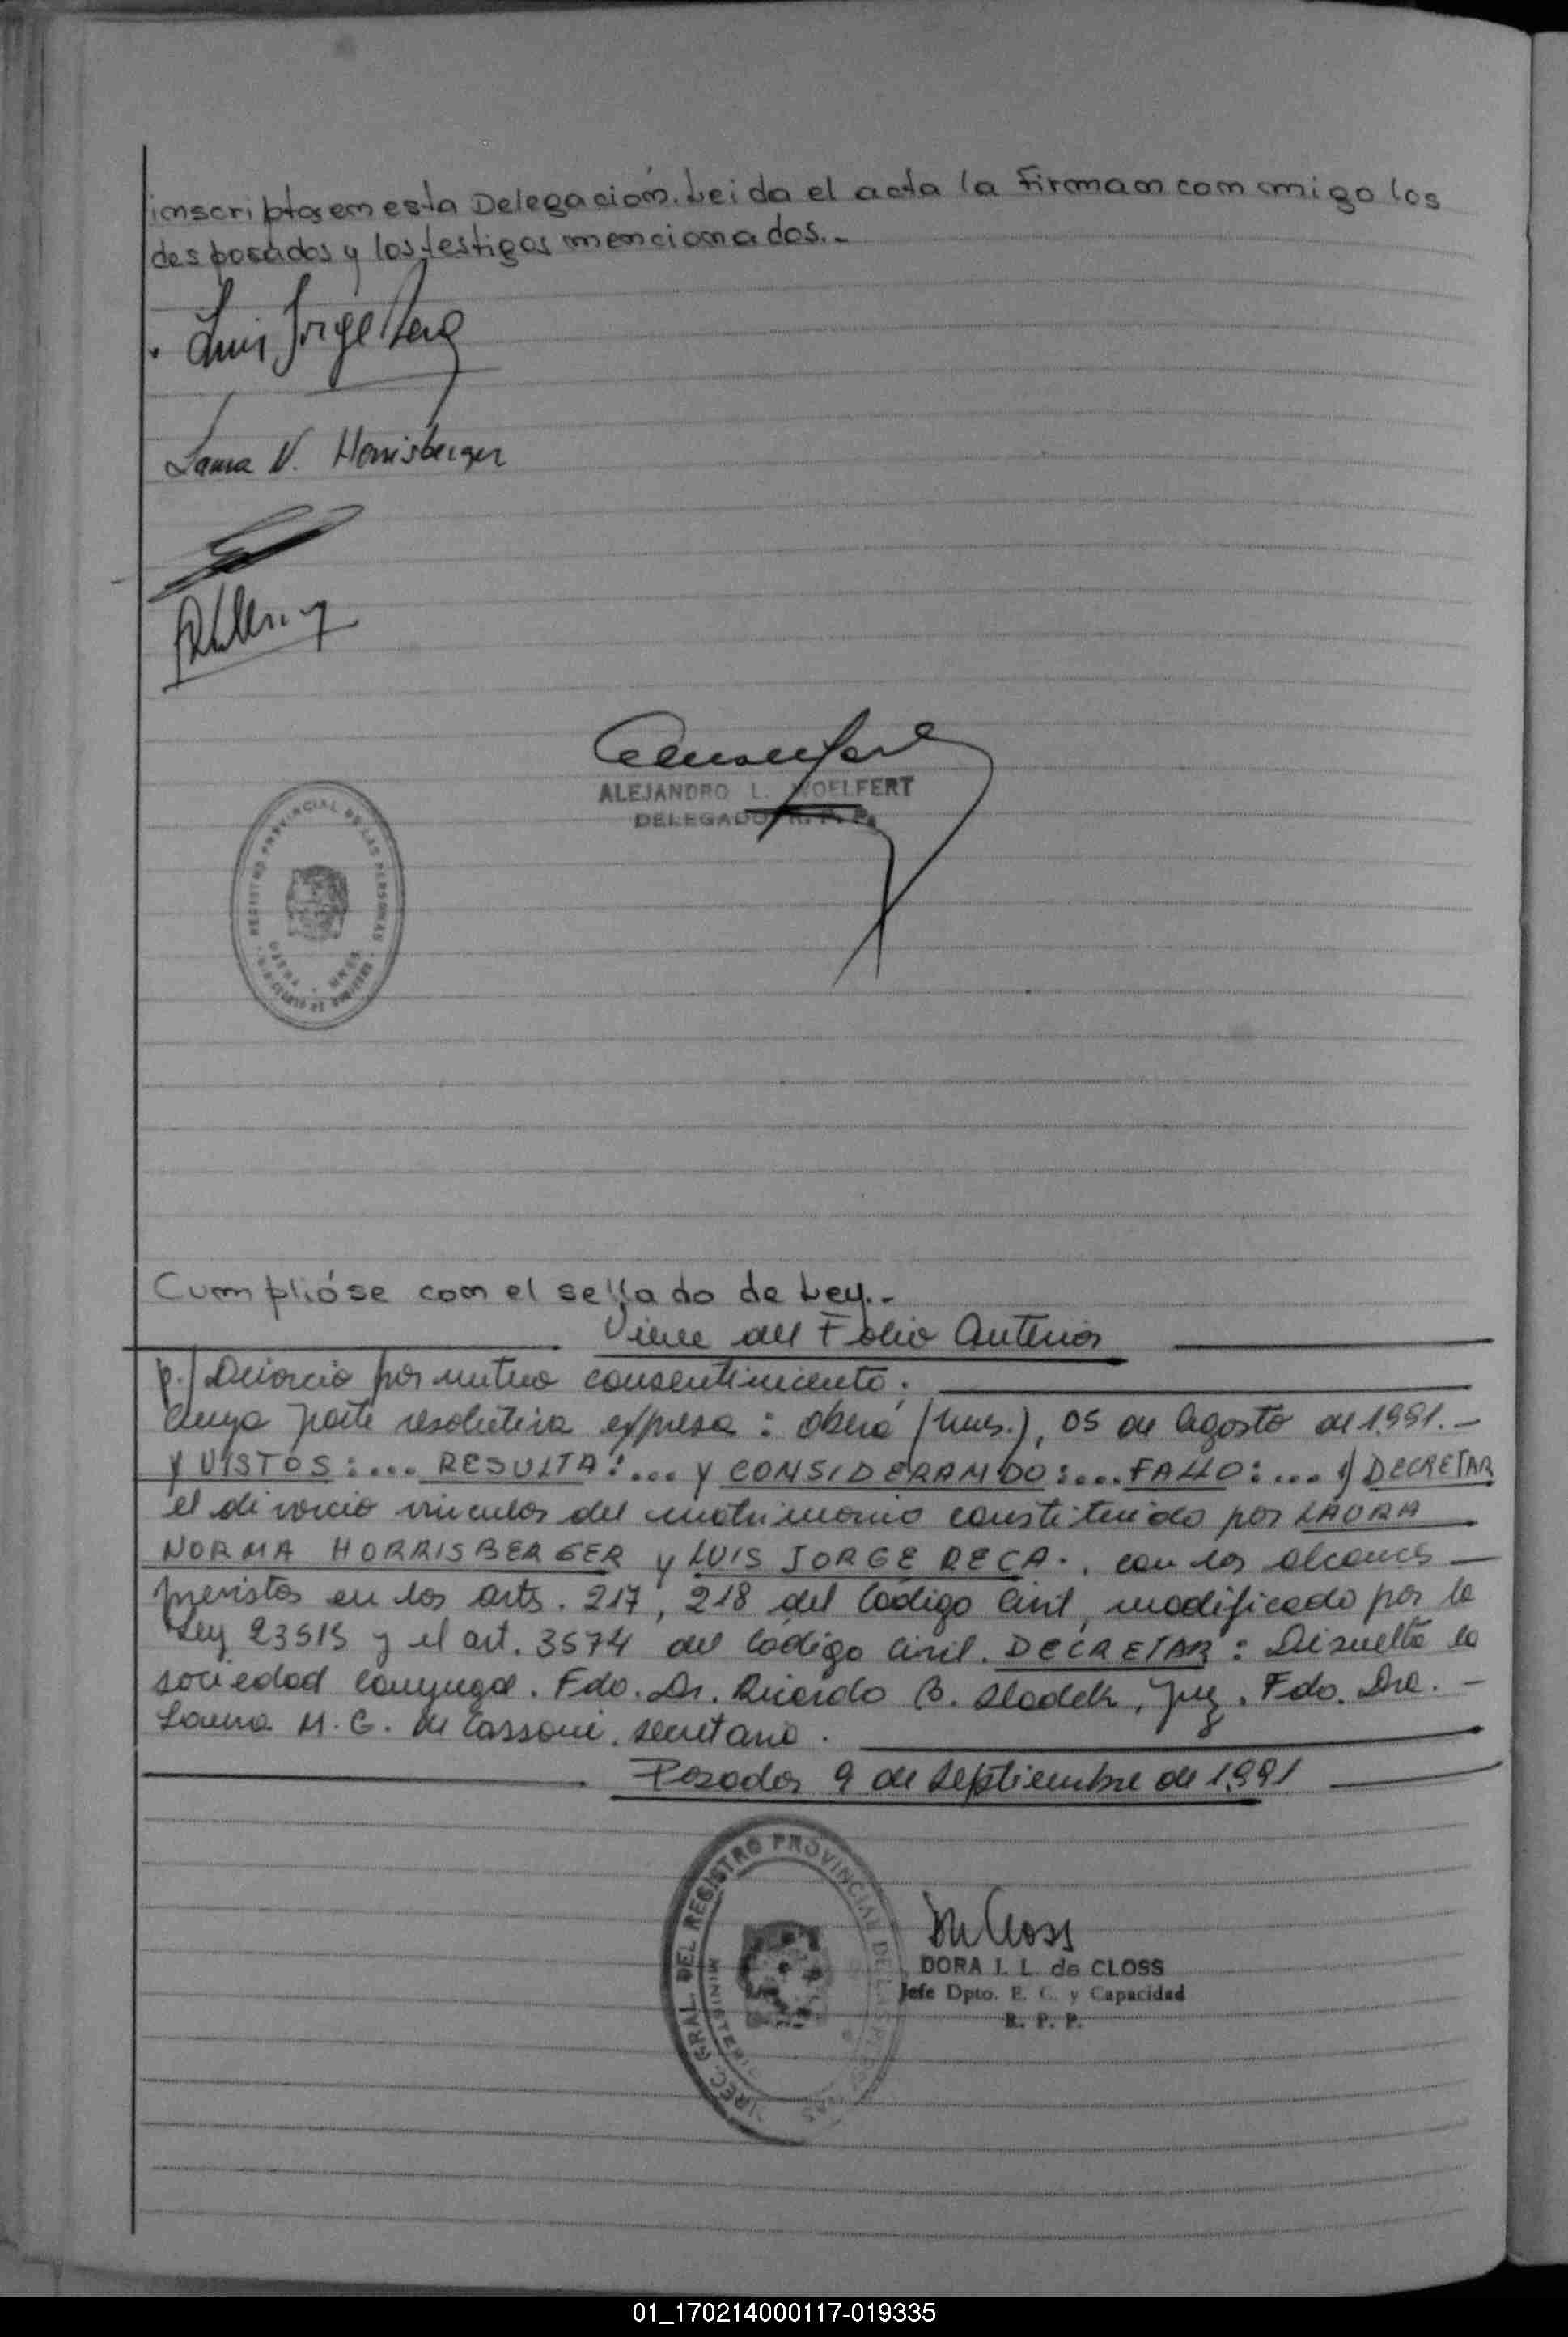 inscriptos en esta Delegación. Leida el acta la Firman con migo los
desposados y los testigos mencionados.-
Luis Jorge Reca
Laura N. Horrisberger
ALEJANDRO L. WOELFERT
DELEGADO R. P. P.
REGISTRO PROVINCIAL DE LAS PERSONAS
OBERA - MNES
Cumplióse con el sellado de Ley.-
Viene del Folio Anterior
p./ Divorcio por mutuo consentimiento.
Cuya parte resolutiva expresa: Oberá (Mnes.), 05 de Agosto de 1.991.-
Y VISTOS:... RESULTA:... y CONSIDERANDO:... FALLO:... 1) DECRETAR
el divorcio vincular del matrimonio constituido por LAURA
NORMA HORRISBERGER y LUIS JORGE RECA., con los alcances
previstos en los arts. 217, 218 del Código Civil, modificado por la
Ley 23515 y el art. 3574 del Código Civil. DECRETAR: Disuelta la
sociedad conyugal. Fdo. Dr. Ricardo B. Sladek, Juez. Fdo. Dra. -
Laura M. C. de Cassoni. Secretaria.
Posadas 9 de Septiembre de 1.991
DIREC. GRAL. DEL REGISTRO PROVINCIAL DE LAS PERSONAS
MINISTERIO
DORA I. L. de CLOSS
Jefe Dpto. E. C. y Capacidad
R. P. P.
01_170214000117-019335